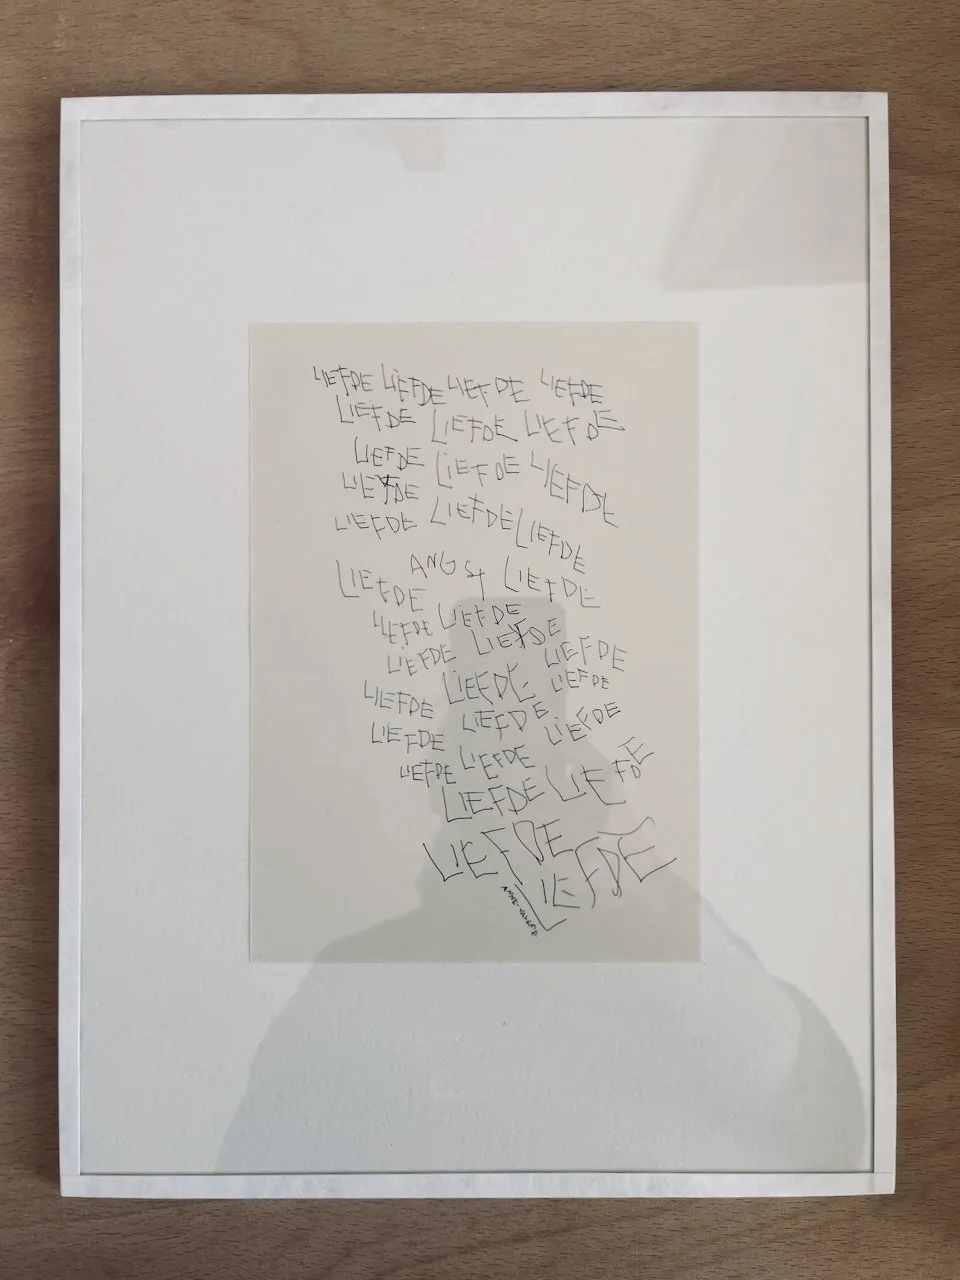 LIEFDE LIEFDE LIEFDE LIEFDE
LIEFDE LIEFDE LIEFDE
LIEFDE LIEFDE LIEFDE
LIEFDE
LIEFDE LIEFDE LIEFDE
ANGST LIEFDE
LIEFDE
LIEFDE LIEFDE
LIEFDE LIEFDE LIEFDE
LIEFDE LIEFDE LIEFDE
LIEFDE LIEFDE LIEFDE
LIEFDE LIEFDE
LIEFDE LIEFDE
LIEFDE
LIEFDE
ANNE-VALERIE